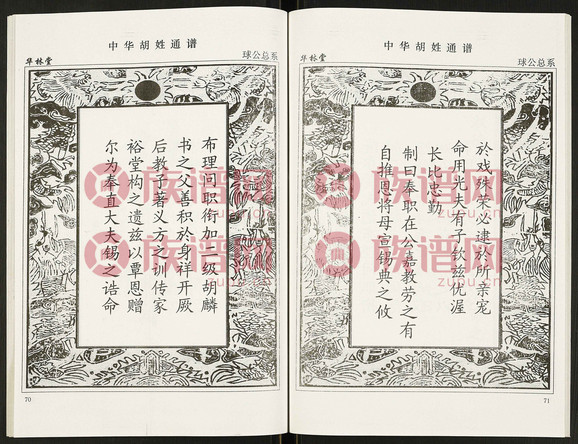 中华胡姓通谱
华林堂
球公总系
布理问职衔加一级胡麟
书之父善积於身祥开厥
后教子著义方之训传家
裕堂构之遗兹以覃恩赠
尔为奉直大夫锡之诰命
70
中华胡姓通谱
华林堂
球公总系
於戏殊荣必逮於所亲宠
命用光夫有子钦兹优渥
长比忠勤
制曰奉职在公嘉教劳之有
自推恩将母宣锡典之攸
71
族谱网
zupu.cn
族谱网
zupu.cn
族谱网
zupu.cn
族谱网
zupu.cn